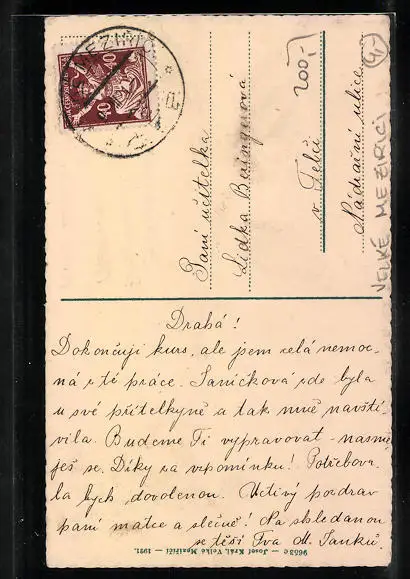 MEZIŘÍČ
40 40
200,-
4,-
Paní učitelka
Lidka
v Telči
Nádražní ulice
VELKÉ MEZIŘÍČÍ
Drahá!
Dokončuji kurs, ale jsem celá nemoc-
ná z té práce. Janíčková zde byla
u své přítelkyně a tak mně navští-
vila. Budeme Ti vypravovat - nasmě
ješ se. Díky za vzpomínku! Potřebova
la bych dovolenou. Uctivý pozdrav
paní matce a slečně! Na shledanou
se těší Tva M. Janků.
9653 c — Josef Král, Velké Meziříčí — 1921.